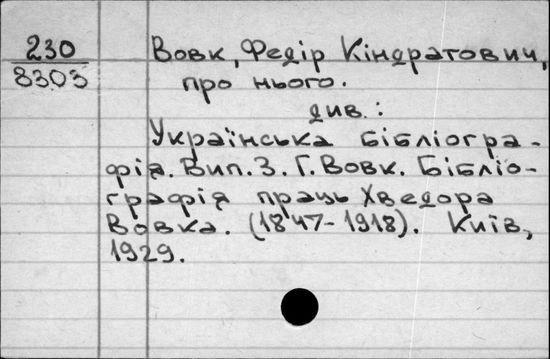 230
8303
Вовк, Федір Кіндратович,
про нього.
див.:
Українська бібліогра-
фія. Вип. 3. Г. Вовк. Бібліо-
графія праць Хведора
Вовка. (1847-1918). Київ,
1929.